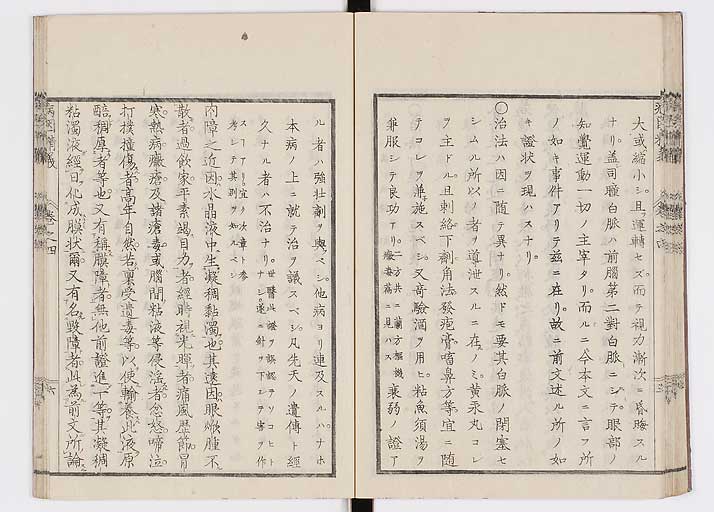 大或ハ縮小シ且ツ運轉セズ而テ視力漸次ニ昏晦スル
ナリ蓋司瞳白脉ハ前腦第二對白脉ニシテ眼部ノ
知覺運動一切ノ主宰タリ而ルニ今本文ニ言フ所
ノ如キ事件アリテ茲ニ在リ故ニ前文述ル所ノ如
キ證状ヲ現ハスナリ
○治法ハ因ニ随テ異ナリ然ドモ要其白脉ノ閉塞セ
シムル所以ノ者ヲ道泄スルニ在ノミ黄汞丸コレ
ヲ主ドル且刺絡下劑角法發疱膏嗜鼻方等宜ニ随
テコレヲ兼施スベシ又奇驗酒ヲ用ヒ粘魚須湯ヲ
兼服シテ良功アリ二方共ニ蘭方樞機 衰弱ノ證ア
ル者ハ強壮劑ヲ與ベシ他病ヨリ連及スルハナホ
本病ノ上ニ就テ治ヲ議スベシ凡先天ノ遺傳ト經
久ナル者ハ不治ナリ
内障之近因水晶液中生凝稠黏濁也其遠因眼焮腫不
散者過飲家平素竭目力者經時視光暉者痛風歴節冒
寒熱病癥瘡及諸瘡毒或腦間粘液等侵淫者忿怒啼泣
打撲撞傷者高年自然若稟受遺毒等以使輸養此液原
酷稠厚者等也又有稱膜障者無他前證進一等其凝稠
粘濁液經日化成膜状爾又有名翳障者此為前文所論
卷之四
六